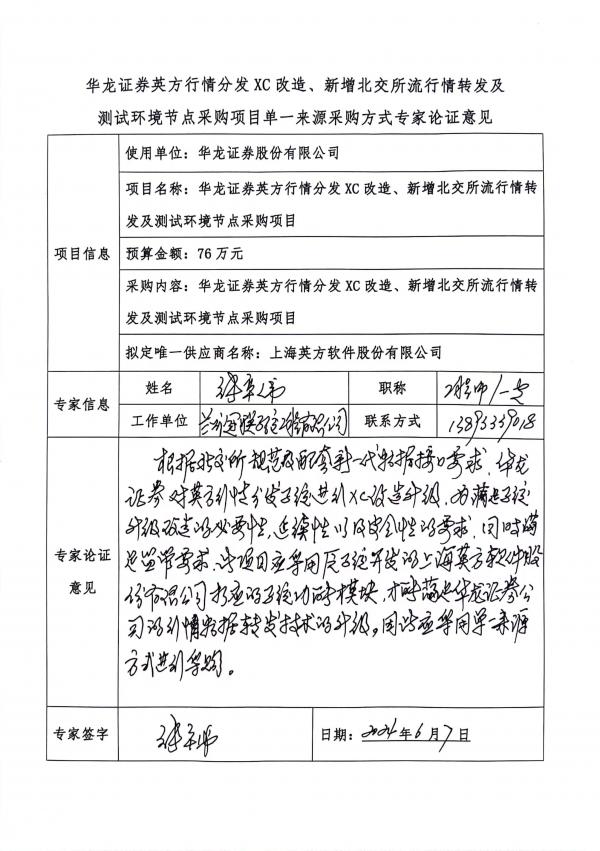 华龙证券英方行情分发 XC 改造、新增北交所流行情转发及
测试环境节点采购项目单一来源采购方式专家论证意见
项目信息
使用单位：华龙证券股份有限公司
项目名称：华龙证券英方行情分发 XC 改造、新增北交所流行情转
发及测试环境节点采购项目
预算金额：76 万元
采购内容：华龙证券英方行情分发 XC 改造、新增北交所流行情转
发及测试环境节点采购项目
拟定唯一供应商名称：上海英方软件股份有限公司
专家信息
姓名
职称
工作单位
有限公司
联系方式
13893339018
专家论证
意见
根据北交所规范及配套新一代数据接口要求，华龙
证券对英方行情分发系统进行XC改造升级，为满足系统
升级改造的必要性、延续性以及安全性的要求，同时满
足监管要求，此项目应采用原系统开发的上海英方软件股
份有限公司相应的系统功能模块，才能满足华龙证券公
司的行情数据转发技术的升级。因此应采用单一来源
方式进行采购。
专家签字
日期：2024年6月7日